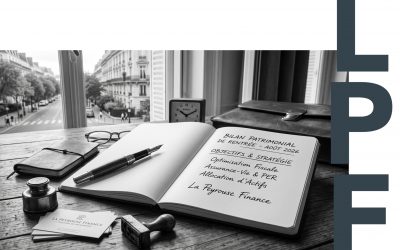 BILAN PATRIMONIAL
DE RENTRÉE - AOÛT 2026
OBJECTIFS & STRATÉGIE
Optimisation Fiscale
Assurance-Vie & PER
Allocation d'Actifs
La Peyrouse Finance
LA PEYROUSE FINANCE
L
P
F